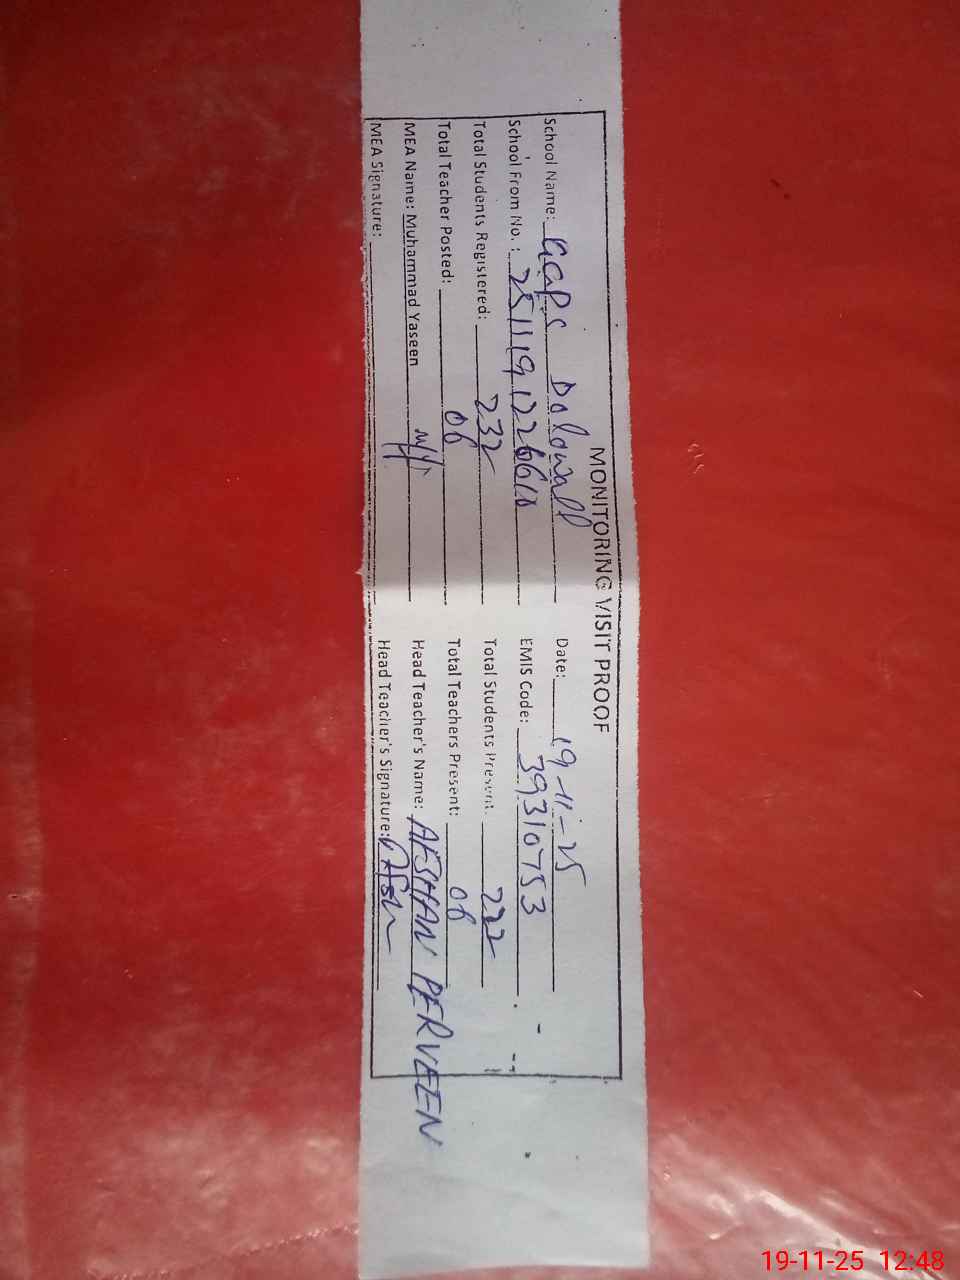 MONITORING VISIT PROOF
School Name: GGPS Dolowall Date: 19-11-25
School From No. : 2511191226610 EMIS Code: 39310753
Total Students Registered: 232 Total Students Present: 222
Total Teacher Posted: 06 Total Teachers Present: 06
MEA Name: Muhammad Yaseen Head Teacher's Name: AFSHAN PERVEEN
MEA Signature: Head Teacher's Signature: Afshn
19-11-25 12:48